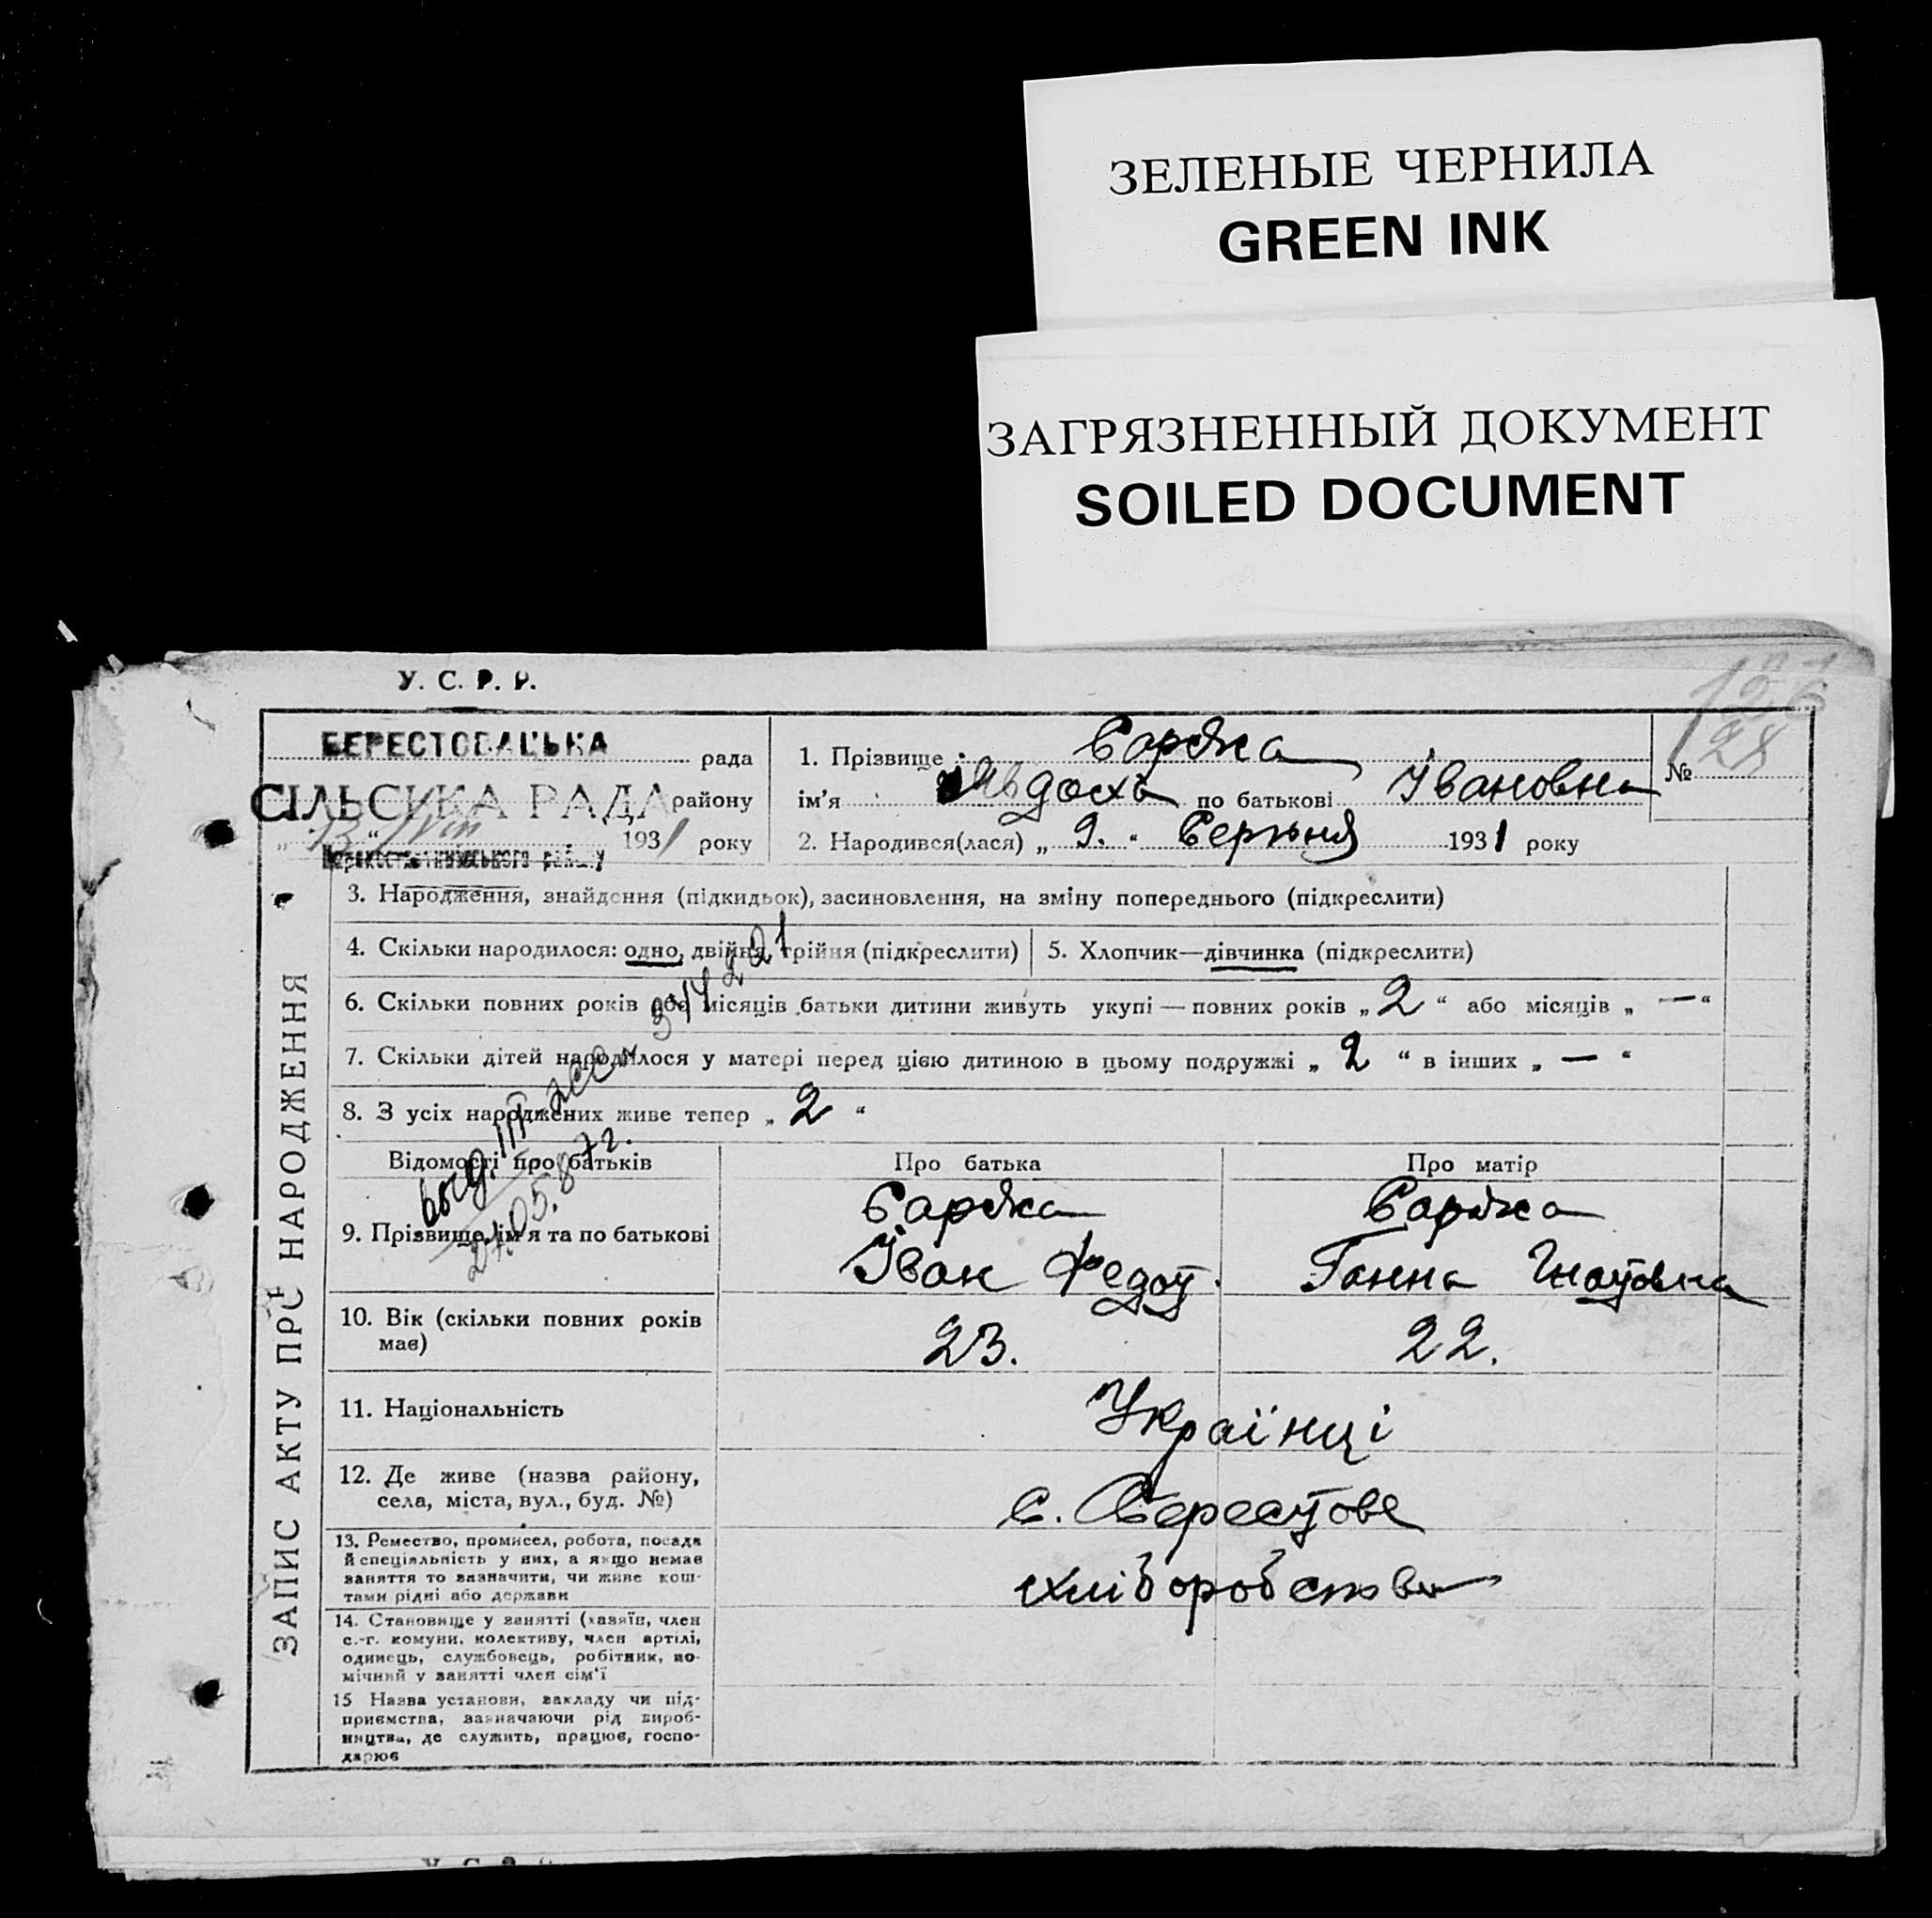 ЗЕЛЕНЫЕ ЧЕРНИЛА
GREEN INK
ЗАГРЯЗНЕННЫЙ ДОКУМЕНТ
SOILED DOCUMENT
У. С. Р. Р.
БЕРЕСТОВАЦЬКА рада
СІЛЬСЬКА РАДА району
„13“ VIII 1931 року
району
1. Прізвище
ім'я Явдоха по батькові Івановна
2. Народився(лася) „9.“ Серпня 1931 року
№ 28
ЗАПИС АКТУ ПРО НАРОДЖЕННЯ
3. Народження, знайдення (підкидьок), засиновлення, на зміну попереднього (підкреслити)
4. Скільки народилося: одно, двійня, трійня (підкреслити)
5. Хлопчик—дівчинка (підкреслити)
6. Скільки повних років або місяців батьки дитини живуть укупі — повних років „2“ або місяців „—“
7. Скільки дітей народилося у матері перед цією дитиною в цьому подружжі „2“ в інших „—“
8. З усіх народжених живе тепер „2“
Відомості про батьків Про батька Про матір
9. Прізвище, ім'я та по батькові
Іван Федот. Ганна
10. Вік (скільки повних років має) 23. 22.
11. Національність Українці
12. Де живе (назва району,
села, міста, вул., буд. №) с. Берестове
13. Ремество, промисел, робота, посада
й спеціяльність у них, а якщо немає
заняття то зазначити, чи живе кош-
тами рідні або держави
хліборобство
14. Становище у занятті (хазяїн, член
с.-г. комуни, колективу, член артілі,
одинець, службовець, робітник, по-
мічний у занятті член сім'ї
15 Назва установи, закладу чи під-
приємства, зазначаючи рід вироб-
ництва, де служить, працює, госпо-
дарює